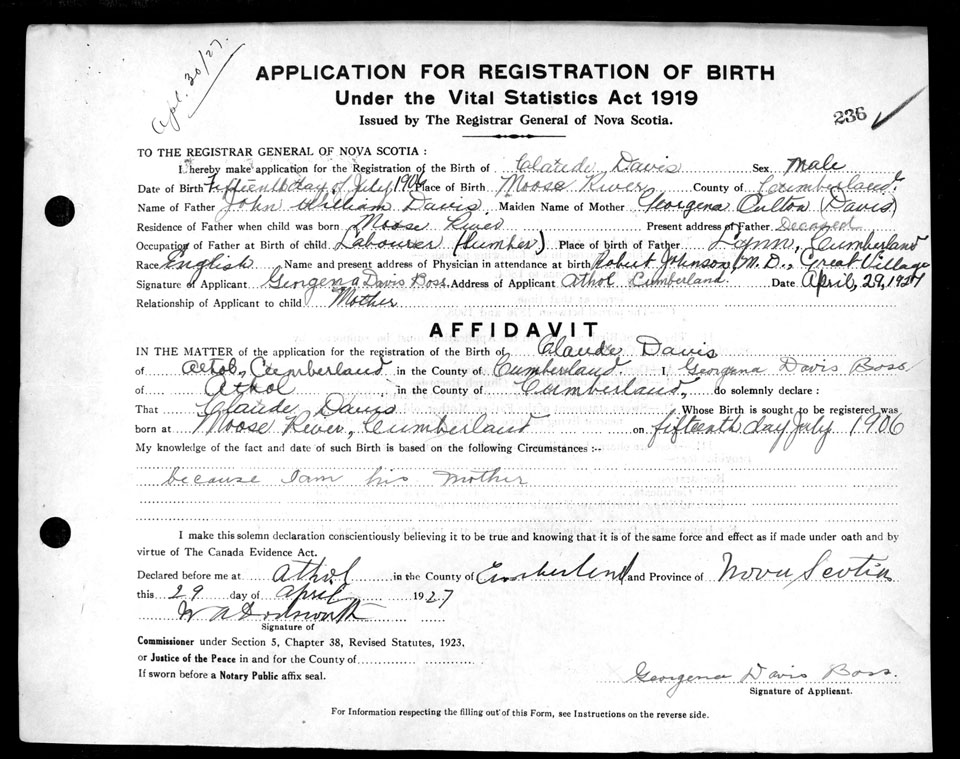 Apl. 30/27.
APPLICATION FOR REGISTRATION OF BIRTH
Under the Vital Statistics Act 1919
236
Issued by The Registrar General of Nova Scotia.
TO THE REGISTRAR GENERAL OF NOVA SCOTIA:
I hereby make application for the Registration of the Birth of Claude Davis Sex Male
Date of Birth Fifteenth day of July 1906 Place of Birth Moose River County of Cumberland.
Name of Father John William Davis Maiden Name of Mother Georgena Culton (Davis)
Residence of Father when child was born Moose River Present address of Father Deceased
Occupation of Father at Birth of child. Labourer (Lumber) Place of birth of Father Lynn, Cumberland
Race English Name and present address of Physician in attendance at birth Robert Johnson M.D., Great Village
Signature of Applicant Georgena Davis Boss. Address of Applicant Athol Cumberland. Date April, 29, 1927
Relationship of Applicant to child Mother
AFFIDAVIT
IN THE MATTER of the application for the registration of the Birth of Claude Davis
of Cumberland in the County of Cumberland. I, Georgena Davis Boss
of Athol in the County of Cumberland, do solemnly declare:
That Claude Davis Whose Birth is sought to be registered was
born at Moose River, Cumberland on fifteenth day July 1906
My knowledge of the fact and date of such Birth is based on the following Circumstances:--
because I am his Mother
I make this solemn declaration conscientiously believing it to be true and knowing that it is of the same force and effect as if made under oath and by
virtue of The Canada Evidence Act.
Declared before me at Athol in the County of Cumberland and Province of Nova Scotia
this 29 day of April 1927
W A Dodsworth
Signature of
Commissioner under Section 5, Chapter 38, Revised Statutes, 1923,
or Justice of the Peace in and for the County of
If sworn before a Notary Public affix seal.
Georgena Davis Boss.
Signature of Applicant.
For Information respecting the filling out of this Form, see Instructions on the reverse side.